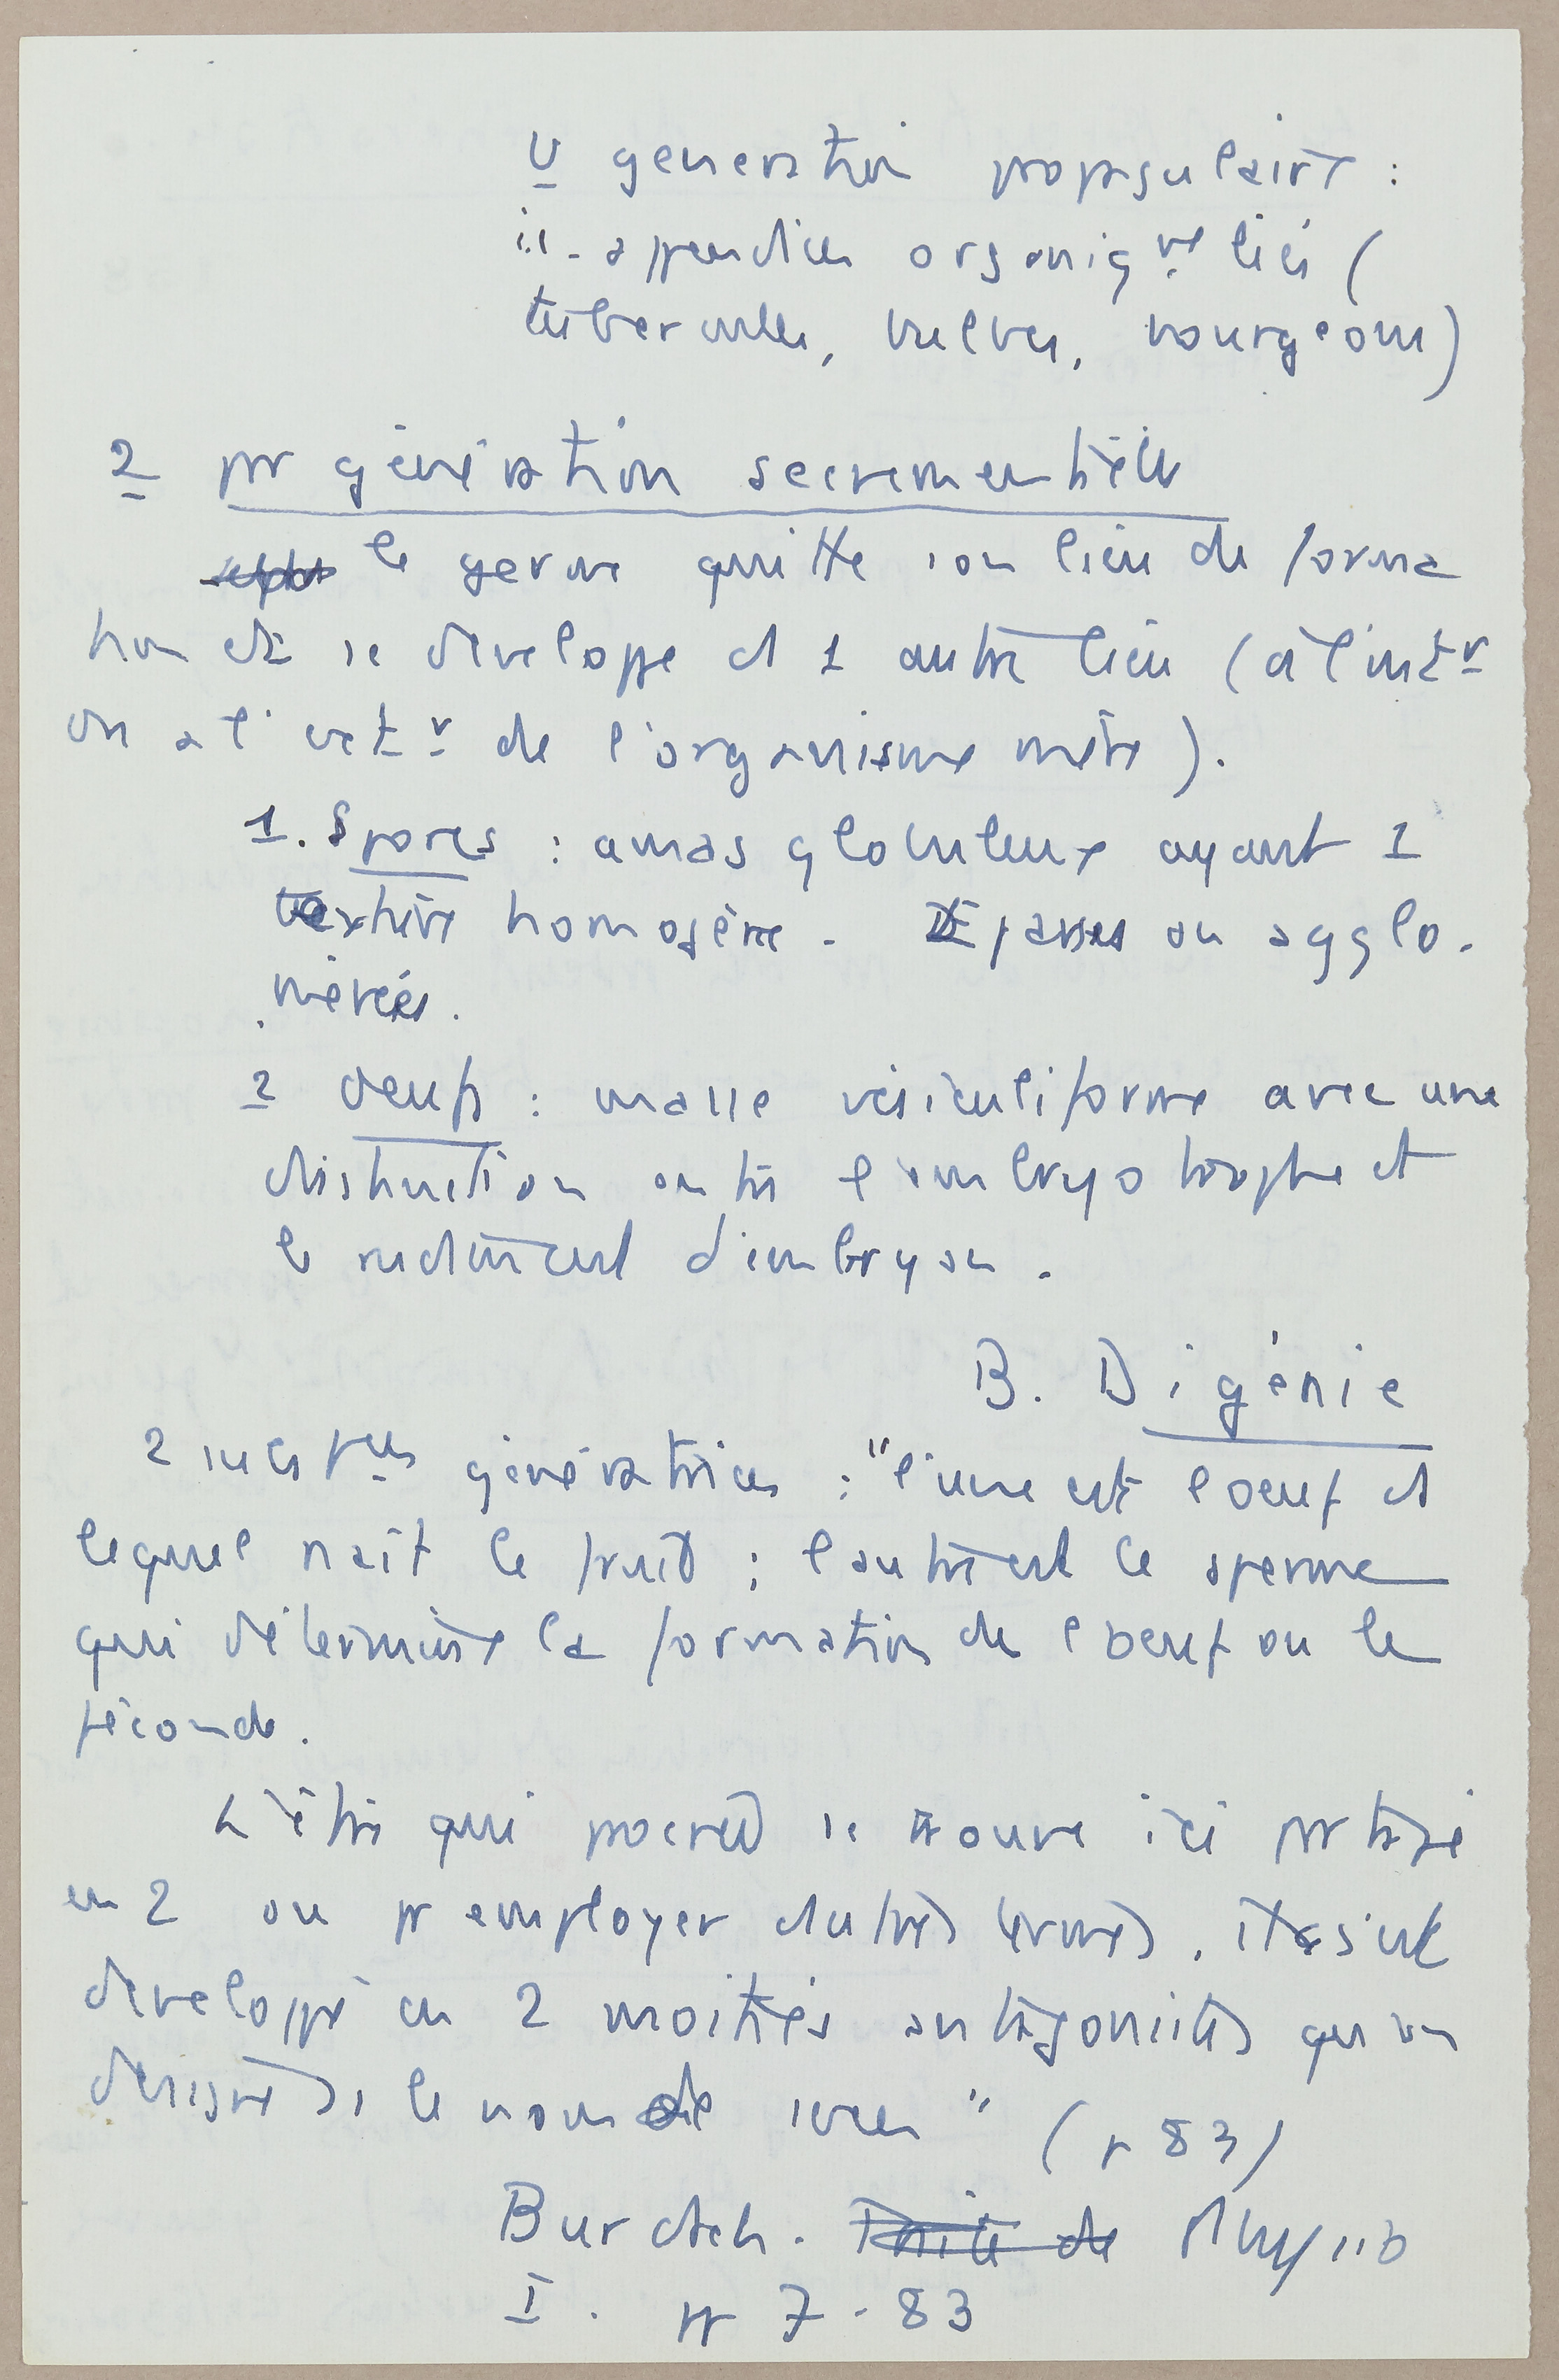 U generation propagulaire :
i.e. appendices organiq<u>ue</u> liés (
tubercules, bulbes, bourgeons)
2 pr génération secrementielle
le germe quitte son lieu de forma
tion et se développe ds 1 autre lieu (à l'intr
ou a l'extr de l'organisme mère).
1. Spores : amas globuleux ayant 1
texture homogène. Eparses ou agglo.
mérées.
2 oeufs : masse vésiculiforme avec une
distinction entre l'embryotrophe et
le rudiment d'embryon.
B. Digénie
2 subst génératrices : "l'une est l oeuf ds
lequel nait le fruit ; l'autre est le sperme
qui détermine la formation de l oeuf ou le
féconde.
L'être qui procréé se trouve ici partagé
en 2 ou pr employer d'autres termes, il s'est
développé en 2 moitiés antagonistes qu'on
désigne ss le nom de sexes " (p 83)
Burdach. Traité de Physio
I. pp 7-83